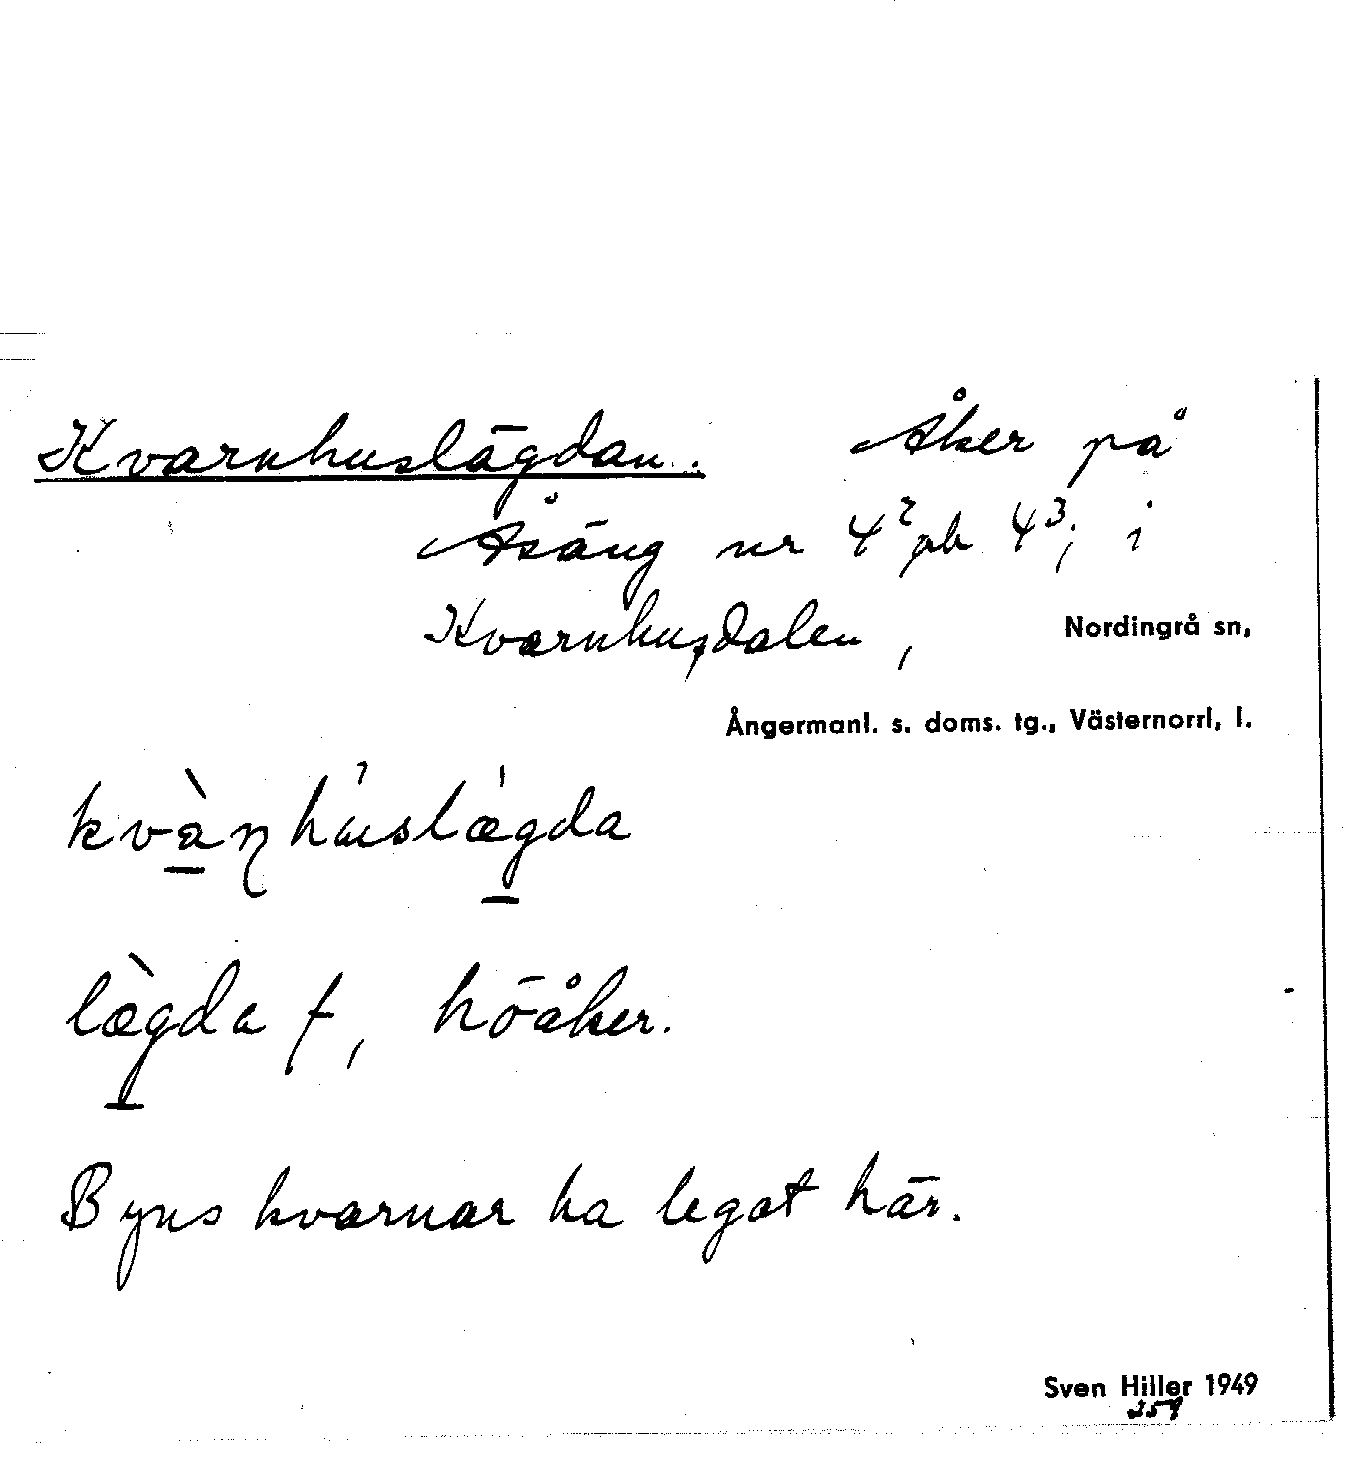 Kvarnhuslägdan. Åker på
Åsäng nr 4² och 4³; i
Kvarnhusdalen, Nordingrå sn,
Ångermanl. s. doms. tg., Västernorrl. l.
kvànhúslǽgda
lǽ̀gda f, höåker.
Byns kvarnar ha legat här.
Sven Hiller 1949
259